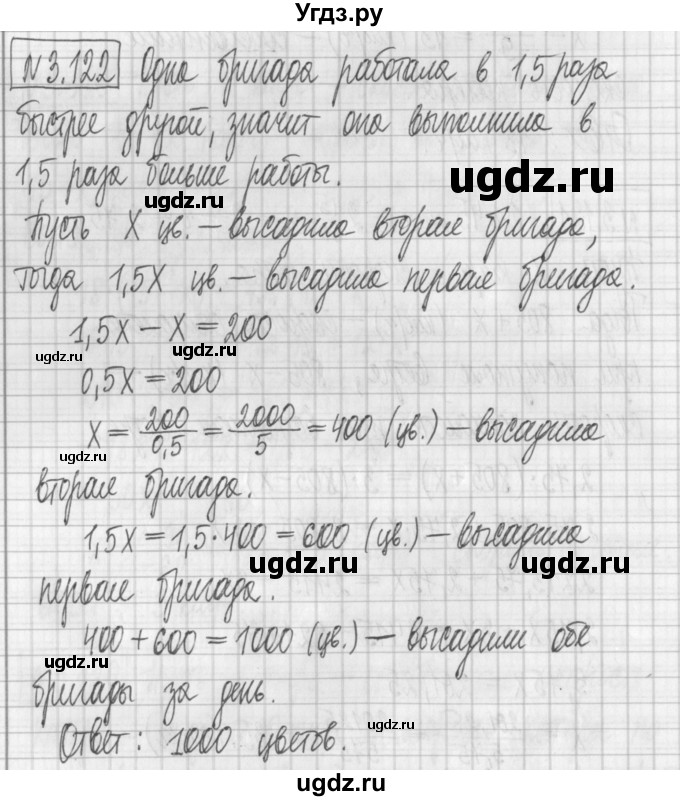 Угдз.ру
№3.122 Одна бригада работала в 1,5 раза
быстрее другой, значит она выполнила в
1,5 раза больше работы.
ugdz.ru
ugdz.ru
Пусть X цв. — высадила вторая бригада,
тогда 1,5X цв. — высадила первая бригада.
1,5X − X = 200
ugdz.ru
ugdz.ru
ugdz.ru
0,5X = 200
X = 200/0,5 = 2000/5 = 400 (цв.) — высадила
ugdz.ru
вторая бригада.
ugdz.ru
1,5X = 1,5·400 = 600 (цв.) — высадила
ugdz.ru
первая бригада.
ugdz.ru
400 + 600 = 1000 (цв.) — высадили обе
ugdz.ru
ugdz.ru
бригады за день.
ugdz.ru
ugdz.ru
Ответ: 1000 цветов.
ugdz.ru